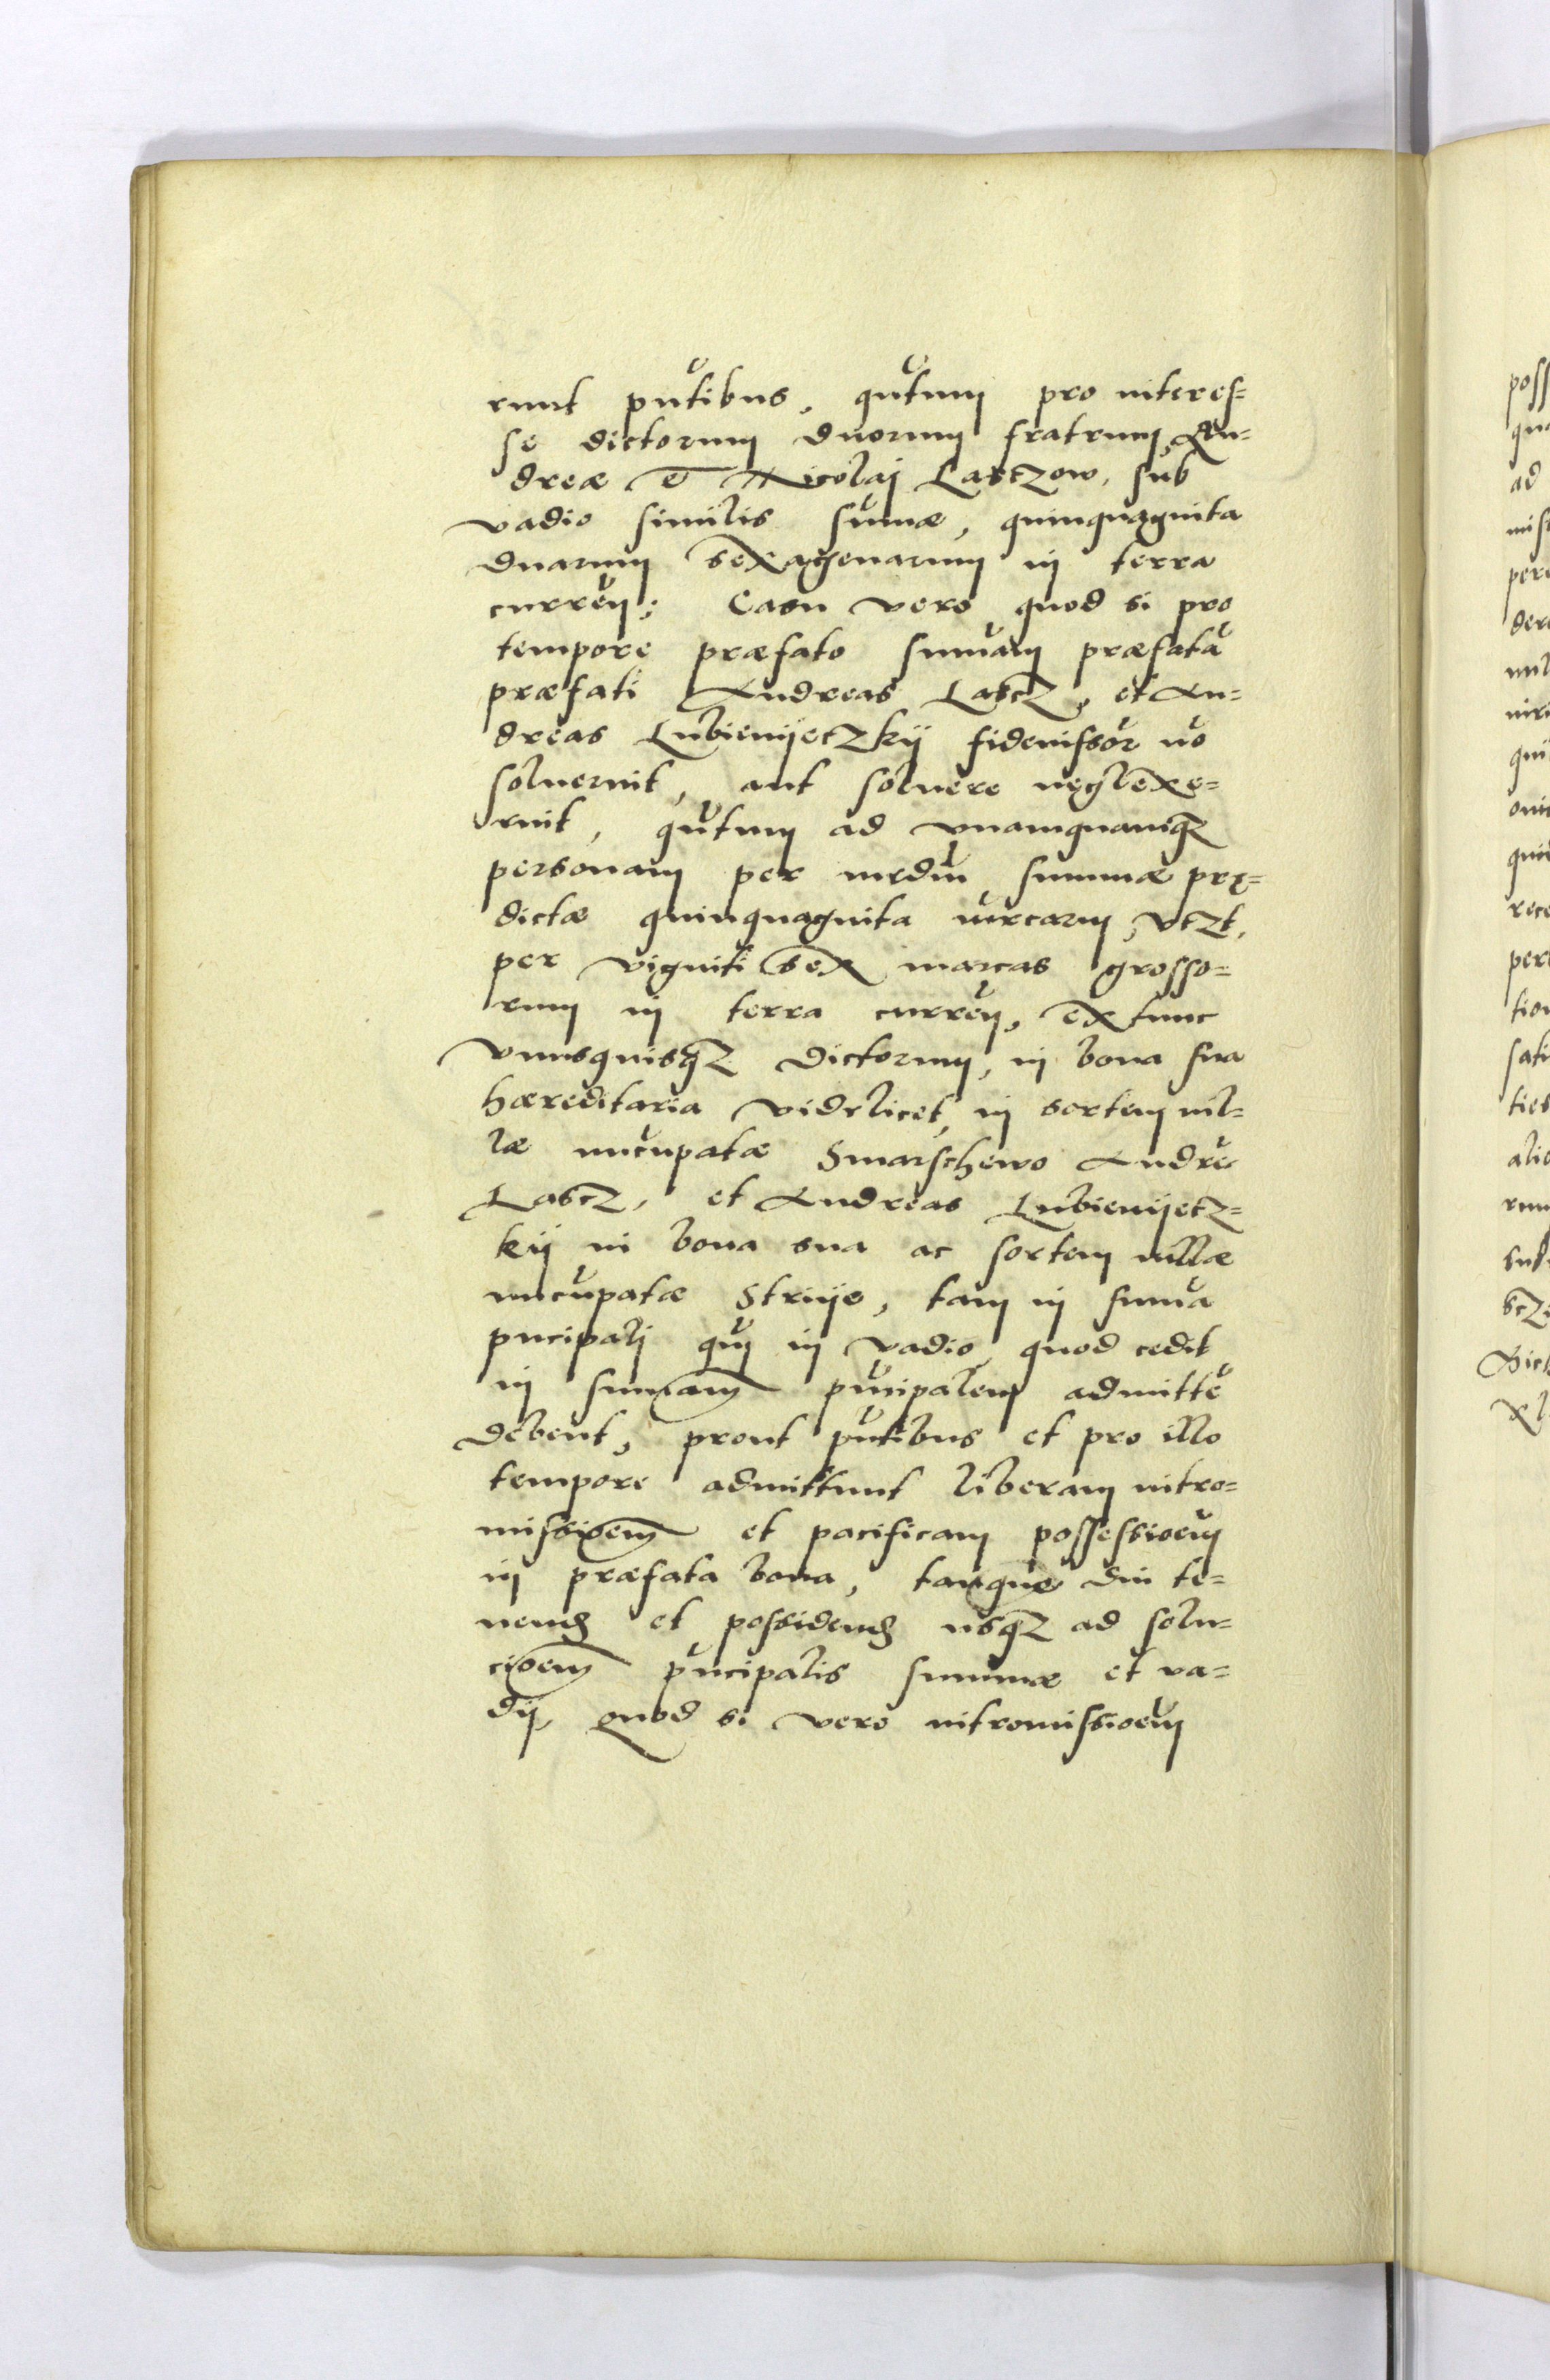 runt pūtibus, qūtum pro interes=
se dictorum duorum fratrum, An=
dreæ e Nicolai Lasczow, sub
vadio similis sūmæ, quinquaginta
duarum sexagenarum in terra
curreñ; Casu vero quod si pro
tempore præfato sum̄am præfatā
præfati Andreas Lascz, et An=
dreas Lubienijeczkij fideiussor nō
soluerint, aut soluere neglexe=
rint, qūtum ad vnamquamqz
personam per mediū summæ prę=
dictæ quinquaginta mrcarū, vtzt.
per viginti sex marcas grosso=
rum in terra curreñ, extunc
vnusquisqz dictorum, in bona sua
hæreditaria videlicet, in sortem uil=
læ nūcupatæ Smarschewo Andre
Lascz, et Andreas Lubienijecz=
kij in bona sua ac sortem uillæ
nūcupatæ Strijo, tam in sum̄a
pncipali qm̄ in vadio, quod cedit
in summam pn̄cipalem admittē
debent, prout pūtibus et pro illo
tempore admittunt liberam intro=
missioem et pacificam possessioem
in præfata bona, tamque diu te=
nend et possidend usqz ad solu=
cioem pn̄cipalis summæ et va=
dij, Quod si vero intromissioem
poss
qua
ad
mis
per
der
uil
niri
qui
omi
qui
rece
per
tio
sati
ties
alio
run
sub
scz